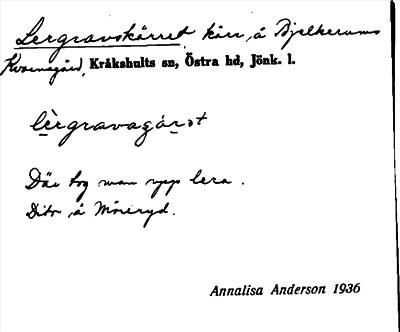 Lergravskärret, kärr å Bjelkerums
Kvarnegård, Kråkshults sn, Östra hd, Jönk. l.
lèrgravaʒáret
Där tog man upp lera.
Dito å Möreryd.
Annalisa Anderson 1936